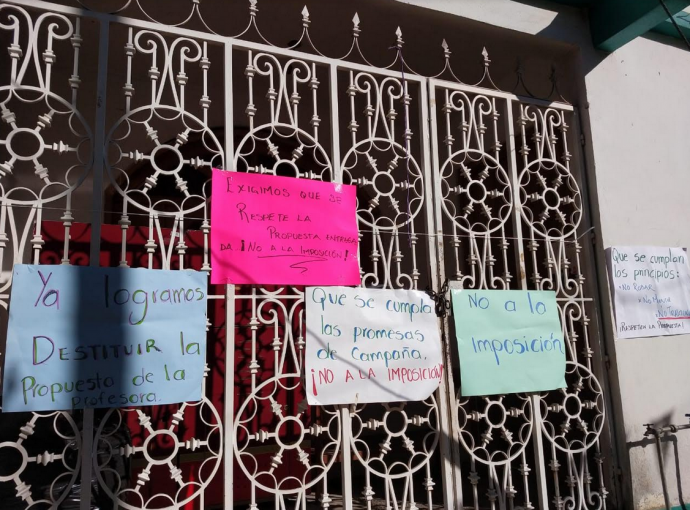 Ya logramos
DESTITUIR la
Propuesta de la
profesora.
EXIGIMOS QUE SE
RESPETE LA
PROPUESTA ENTREGA
DA ¡NO A LA IMPOSICIÓN!
Que se cumpla
las promesas
de Campaña.
¡NO A LA IMPOSICIÓN!
No a la
Imposición
Que se cumplan
los principios:
• No Robar
• No Mentir
• No Traicionar
¡RESPETEN LA PROPUESTA!